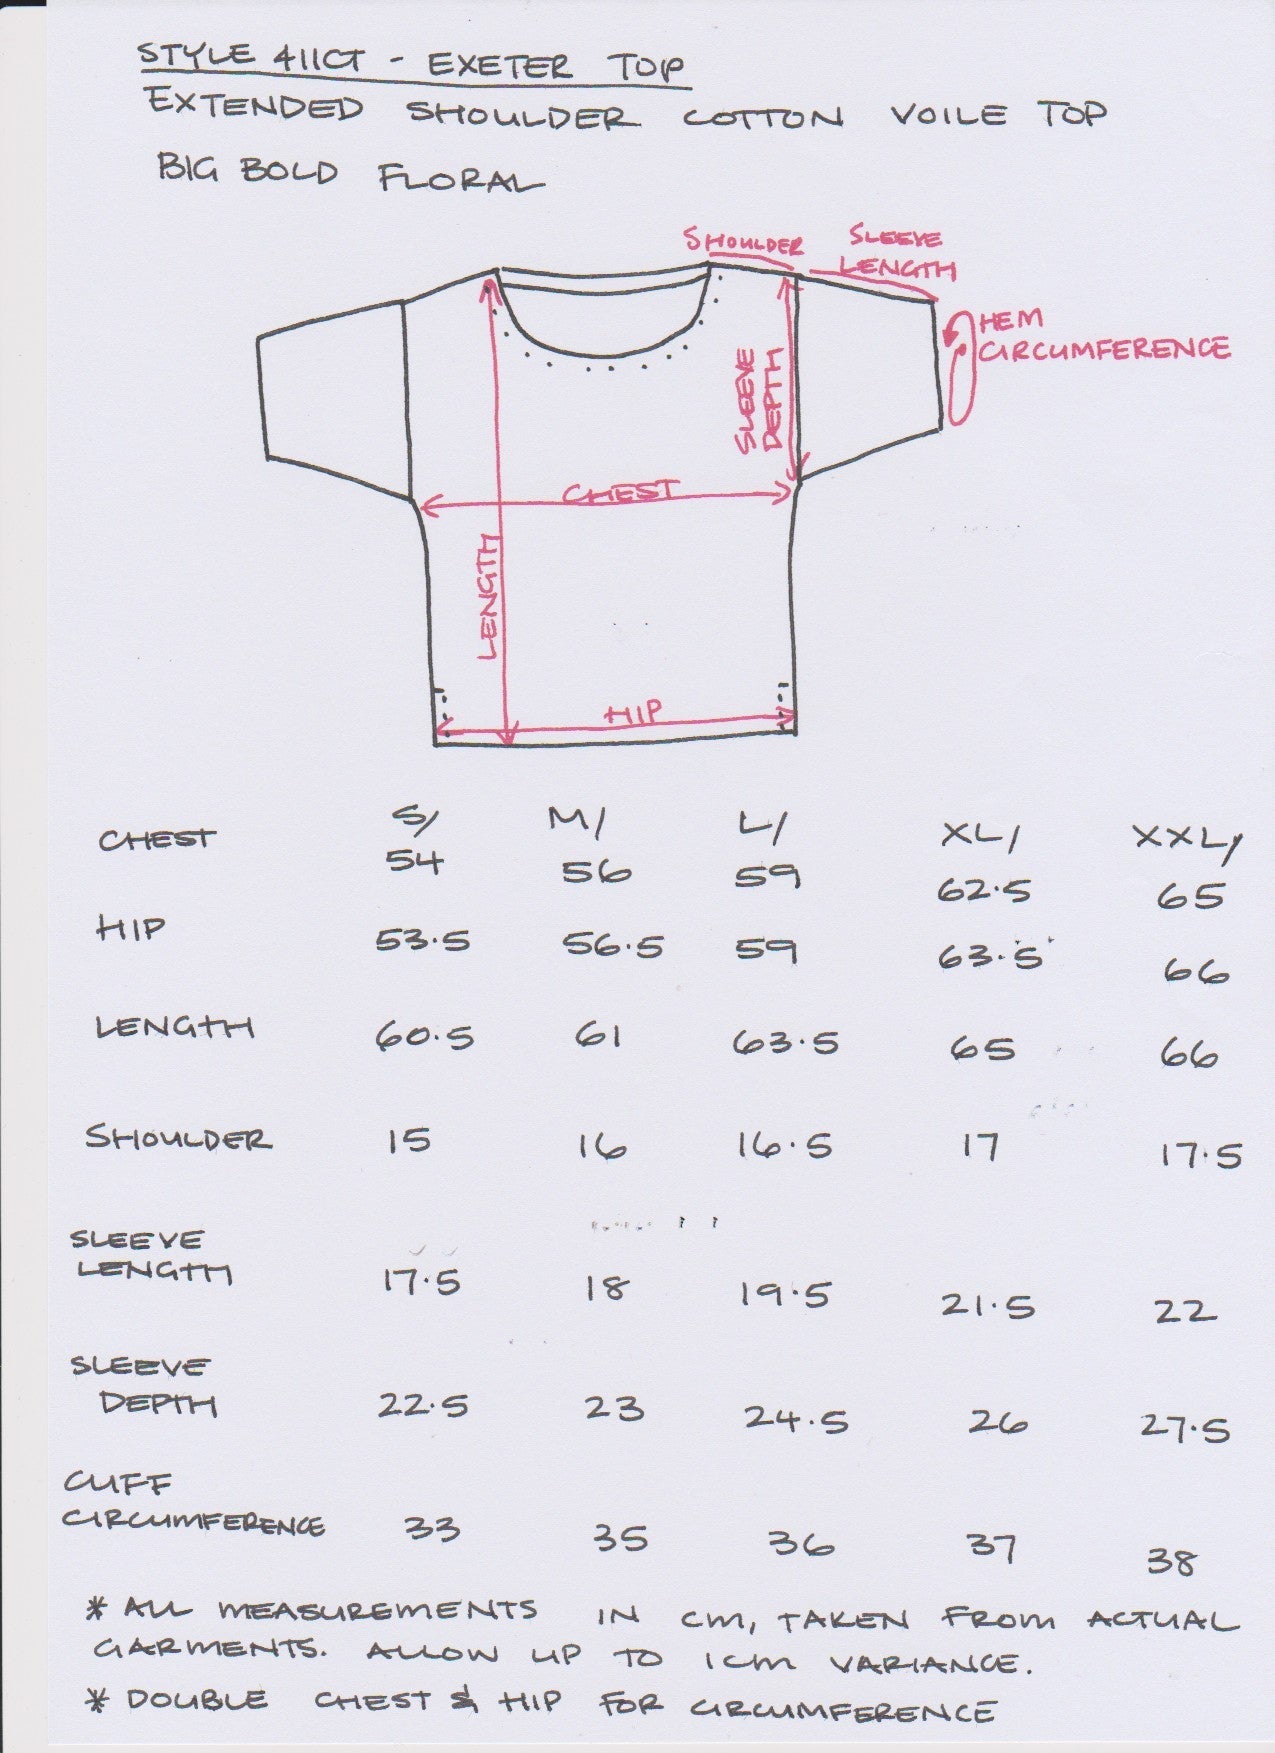 STYLE 411CT - EXETER TOP
EXTENDED SHOULDER COTTON VOILE TOP
BIG BOLD FLORAL
SHOULDER
SLEEVE
LENGTH
HEM
CIRCUMFERENCE
SLEEVE
DEPTH
CHEST
LENGTH
HIP
S/ M/ L/ XL/ XXL/
CHEST 54 56 59 62.5 65
HIP 53.5 56.5 59 63.5 66
LENGTH 60.5 61 63.5 65 66
SHOULDER 15 16 16.5 17 17.5
SLEEVE
LENGTH 17.5 18 19.5 21.5 22
SLEEVE
DEPTH 22.5 23 24.5 26 27.5
CUFF
CIRCUMFERENCE 33 35 36 37 38
* ALL MEASUREMENTS IN CM, TAKEN FROM ACTUAL
GARMENTS. ALLOW UP TO 1CM VARIANCE.
* DOUBLE CHEST & HIP FOR CIRCUMFERENCE